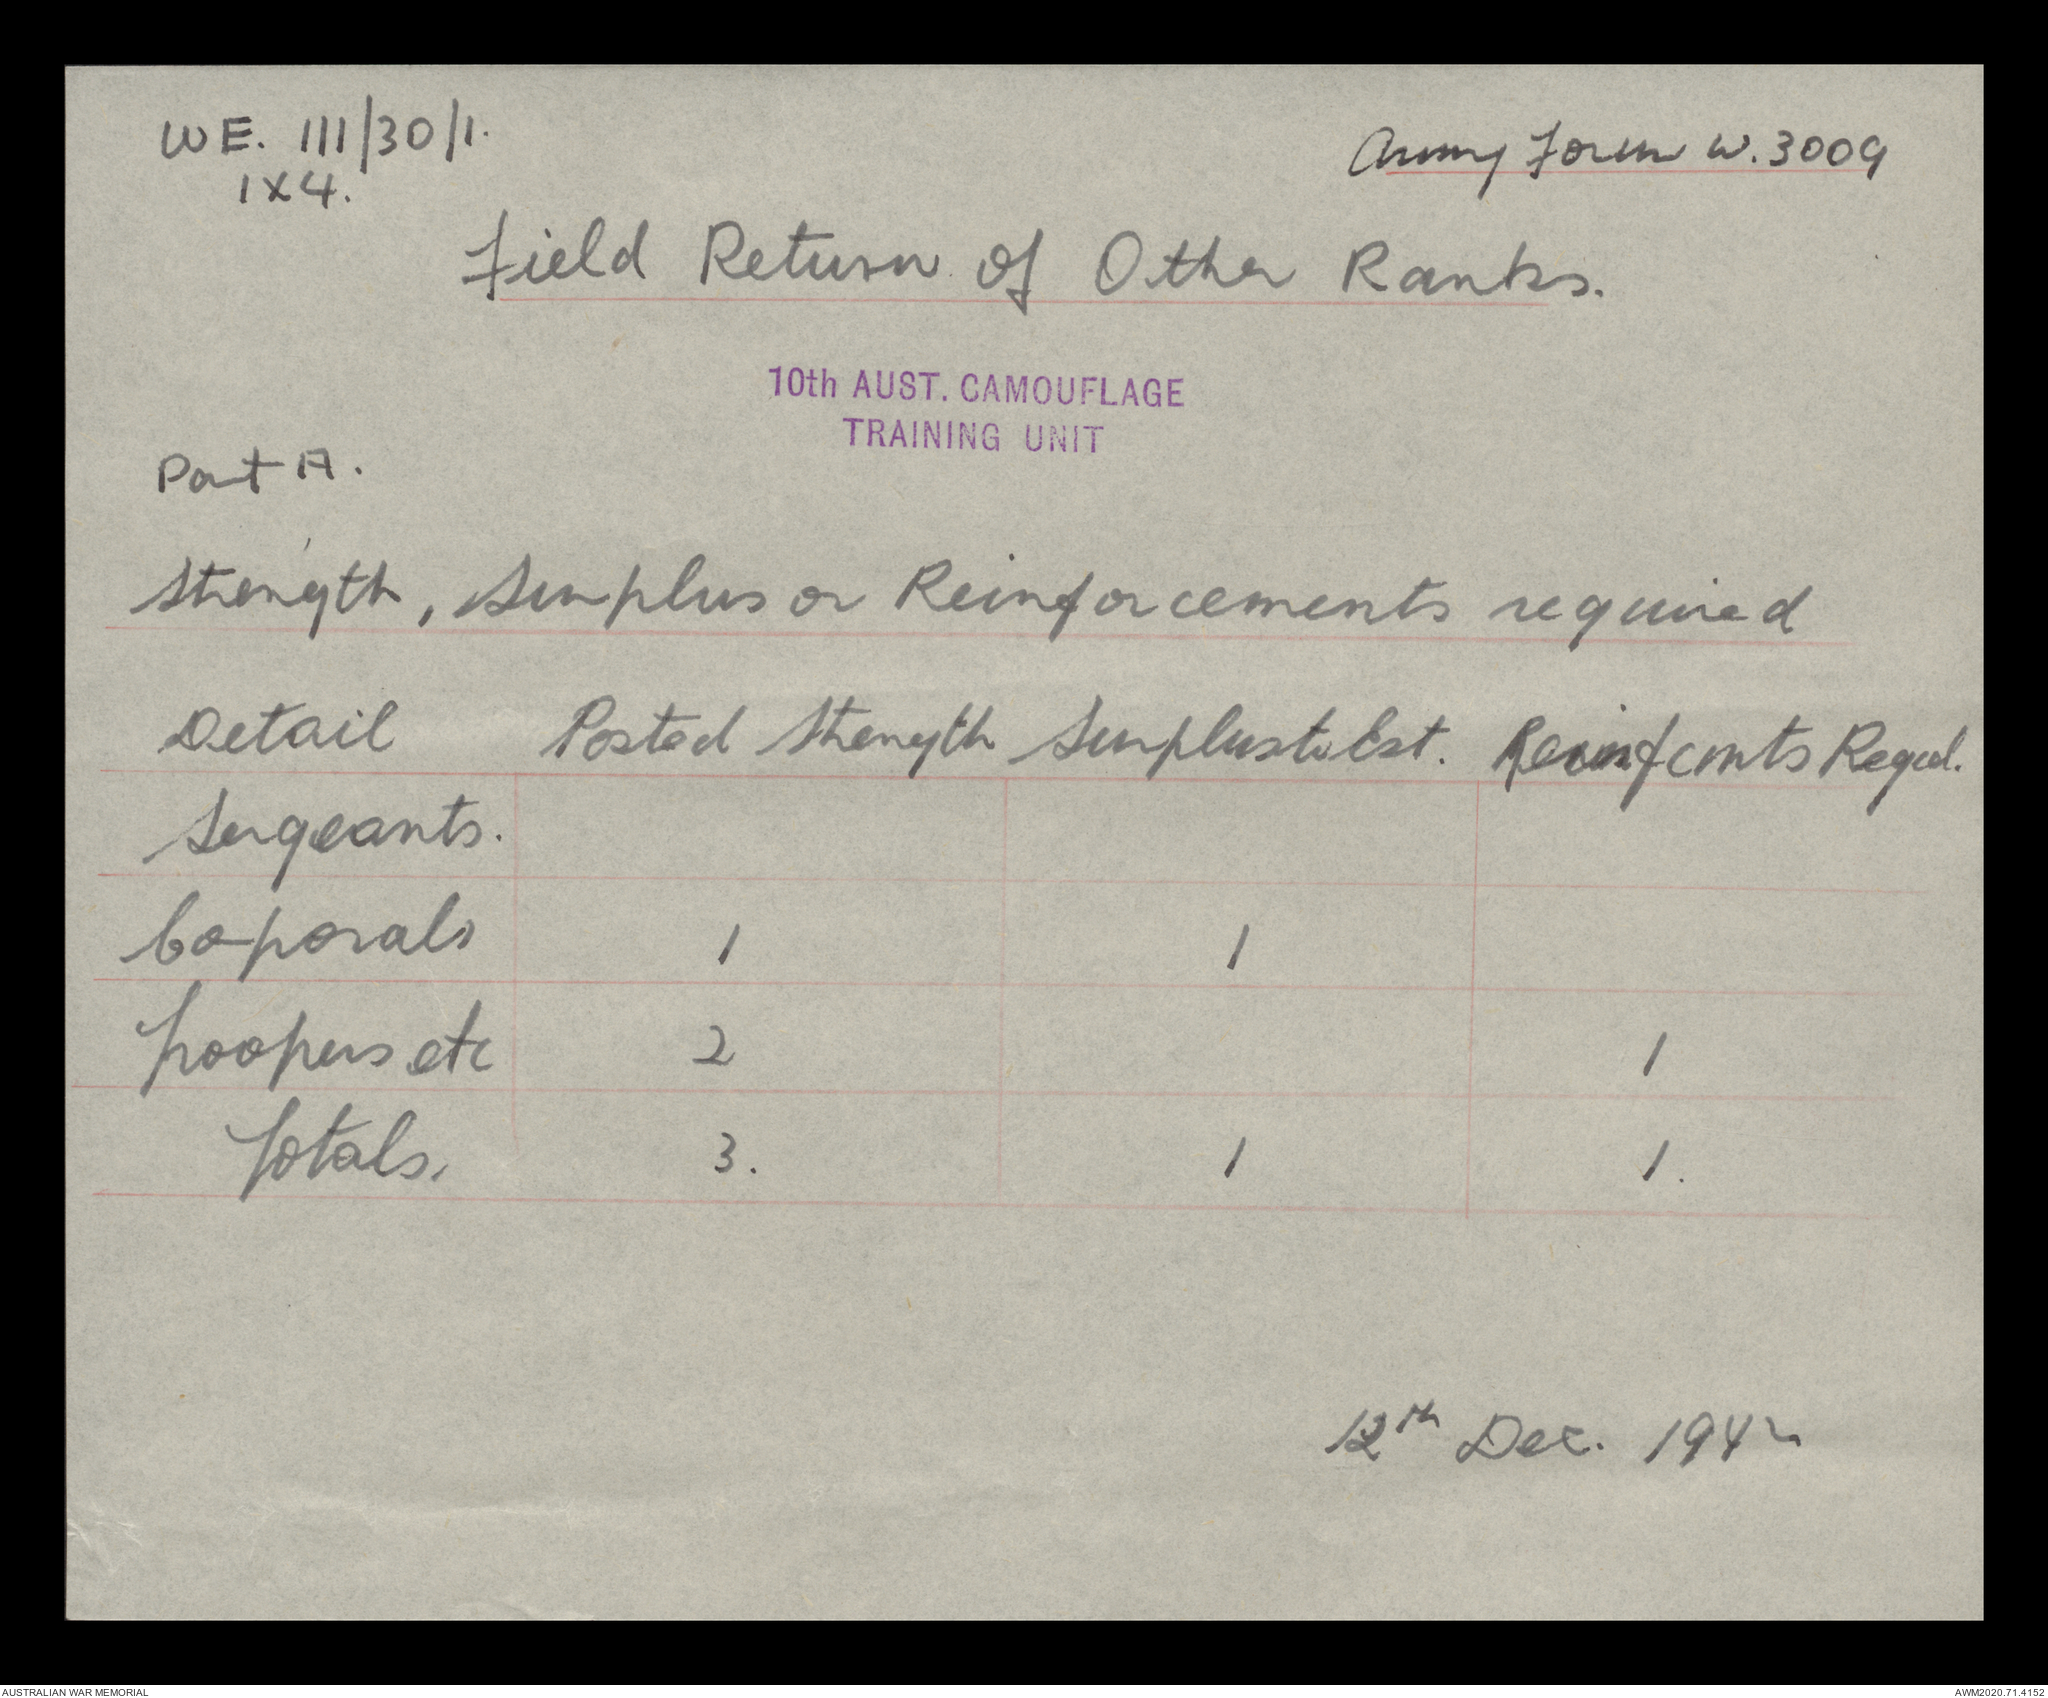 WE. 111/30/1.
1X4.
Army Form W.3009
Field Return of Other Ranks.
10th AUST. CAMOUFLAGE
TRAINING UNIT
Part A.
Strength, Surplus or Reinforcements required
Detail Posted Strength Surplus to Est. Reinfcmts Reqd.
Sergeants.
Corporals 1 1
Troopers etc 2 1
Totals. 3. 1 1.
12th Dec. 1942
AUSTRALIAN WAR MEMORIAL AWM2020.71.4152